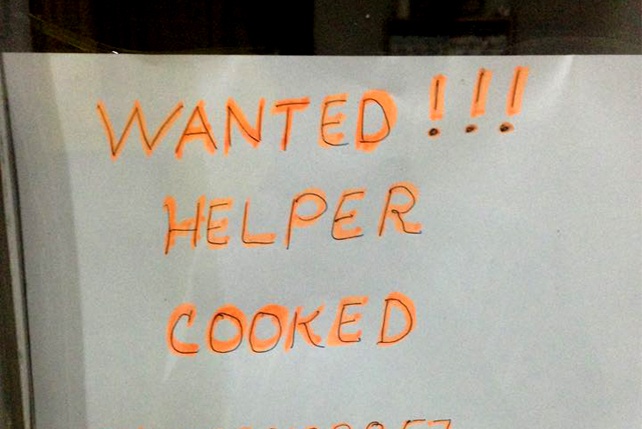 WANTED !!!
HELPER
COOKED